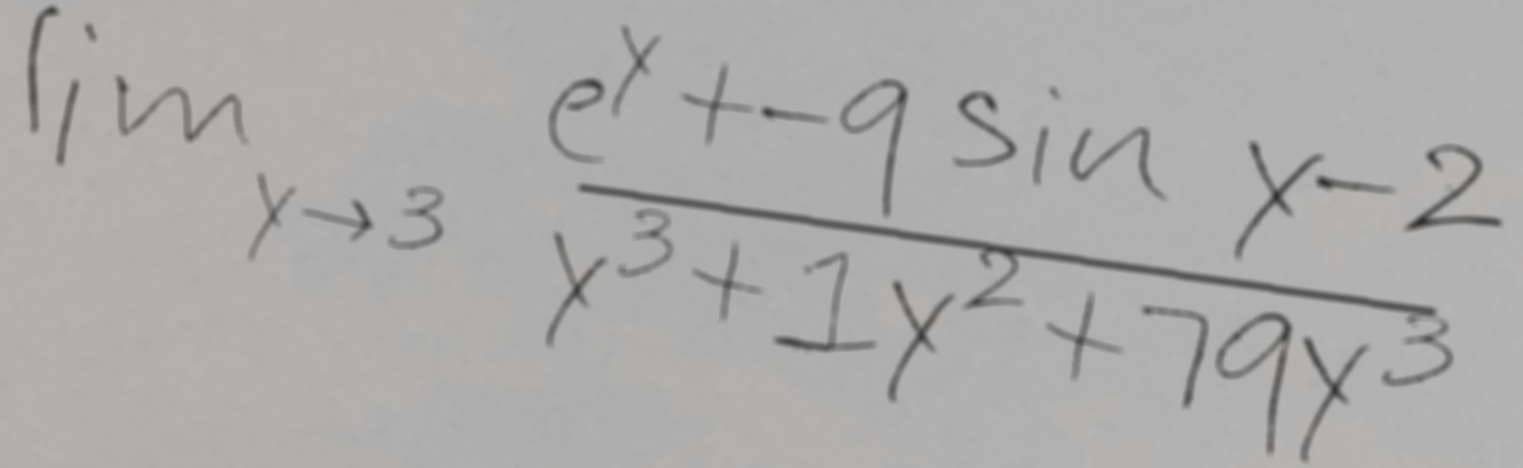 \lim_{x \to 3} \frac{e^x + -9 \sin x - 2}{x^3 + 1x^2 + 79x^3}